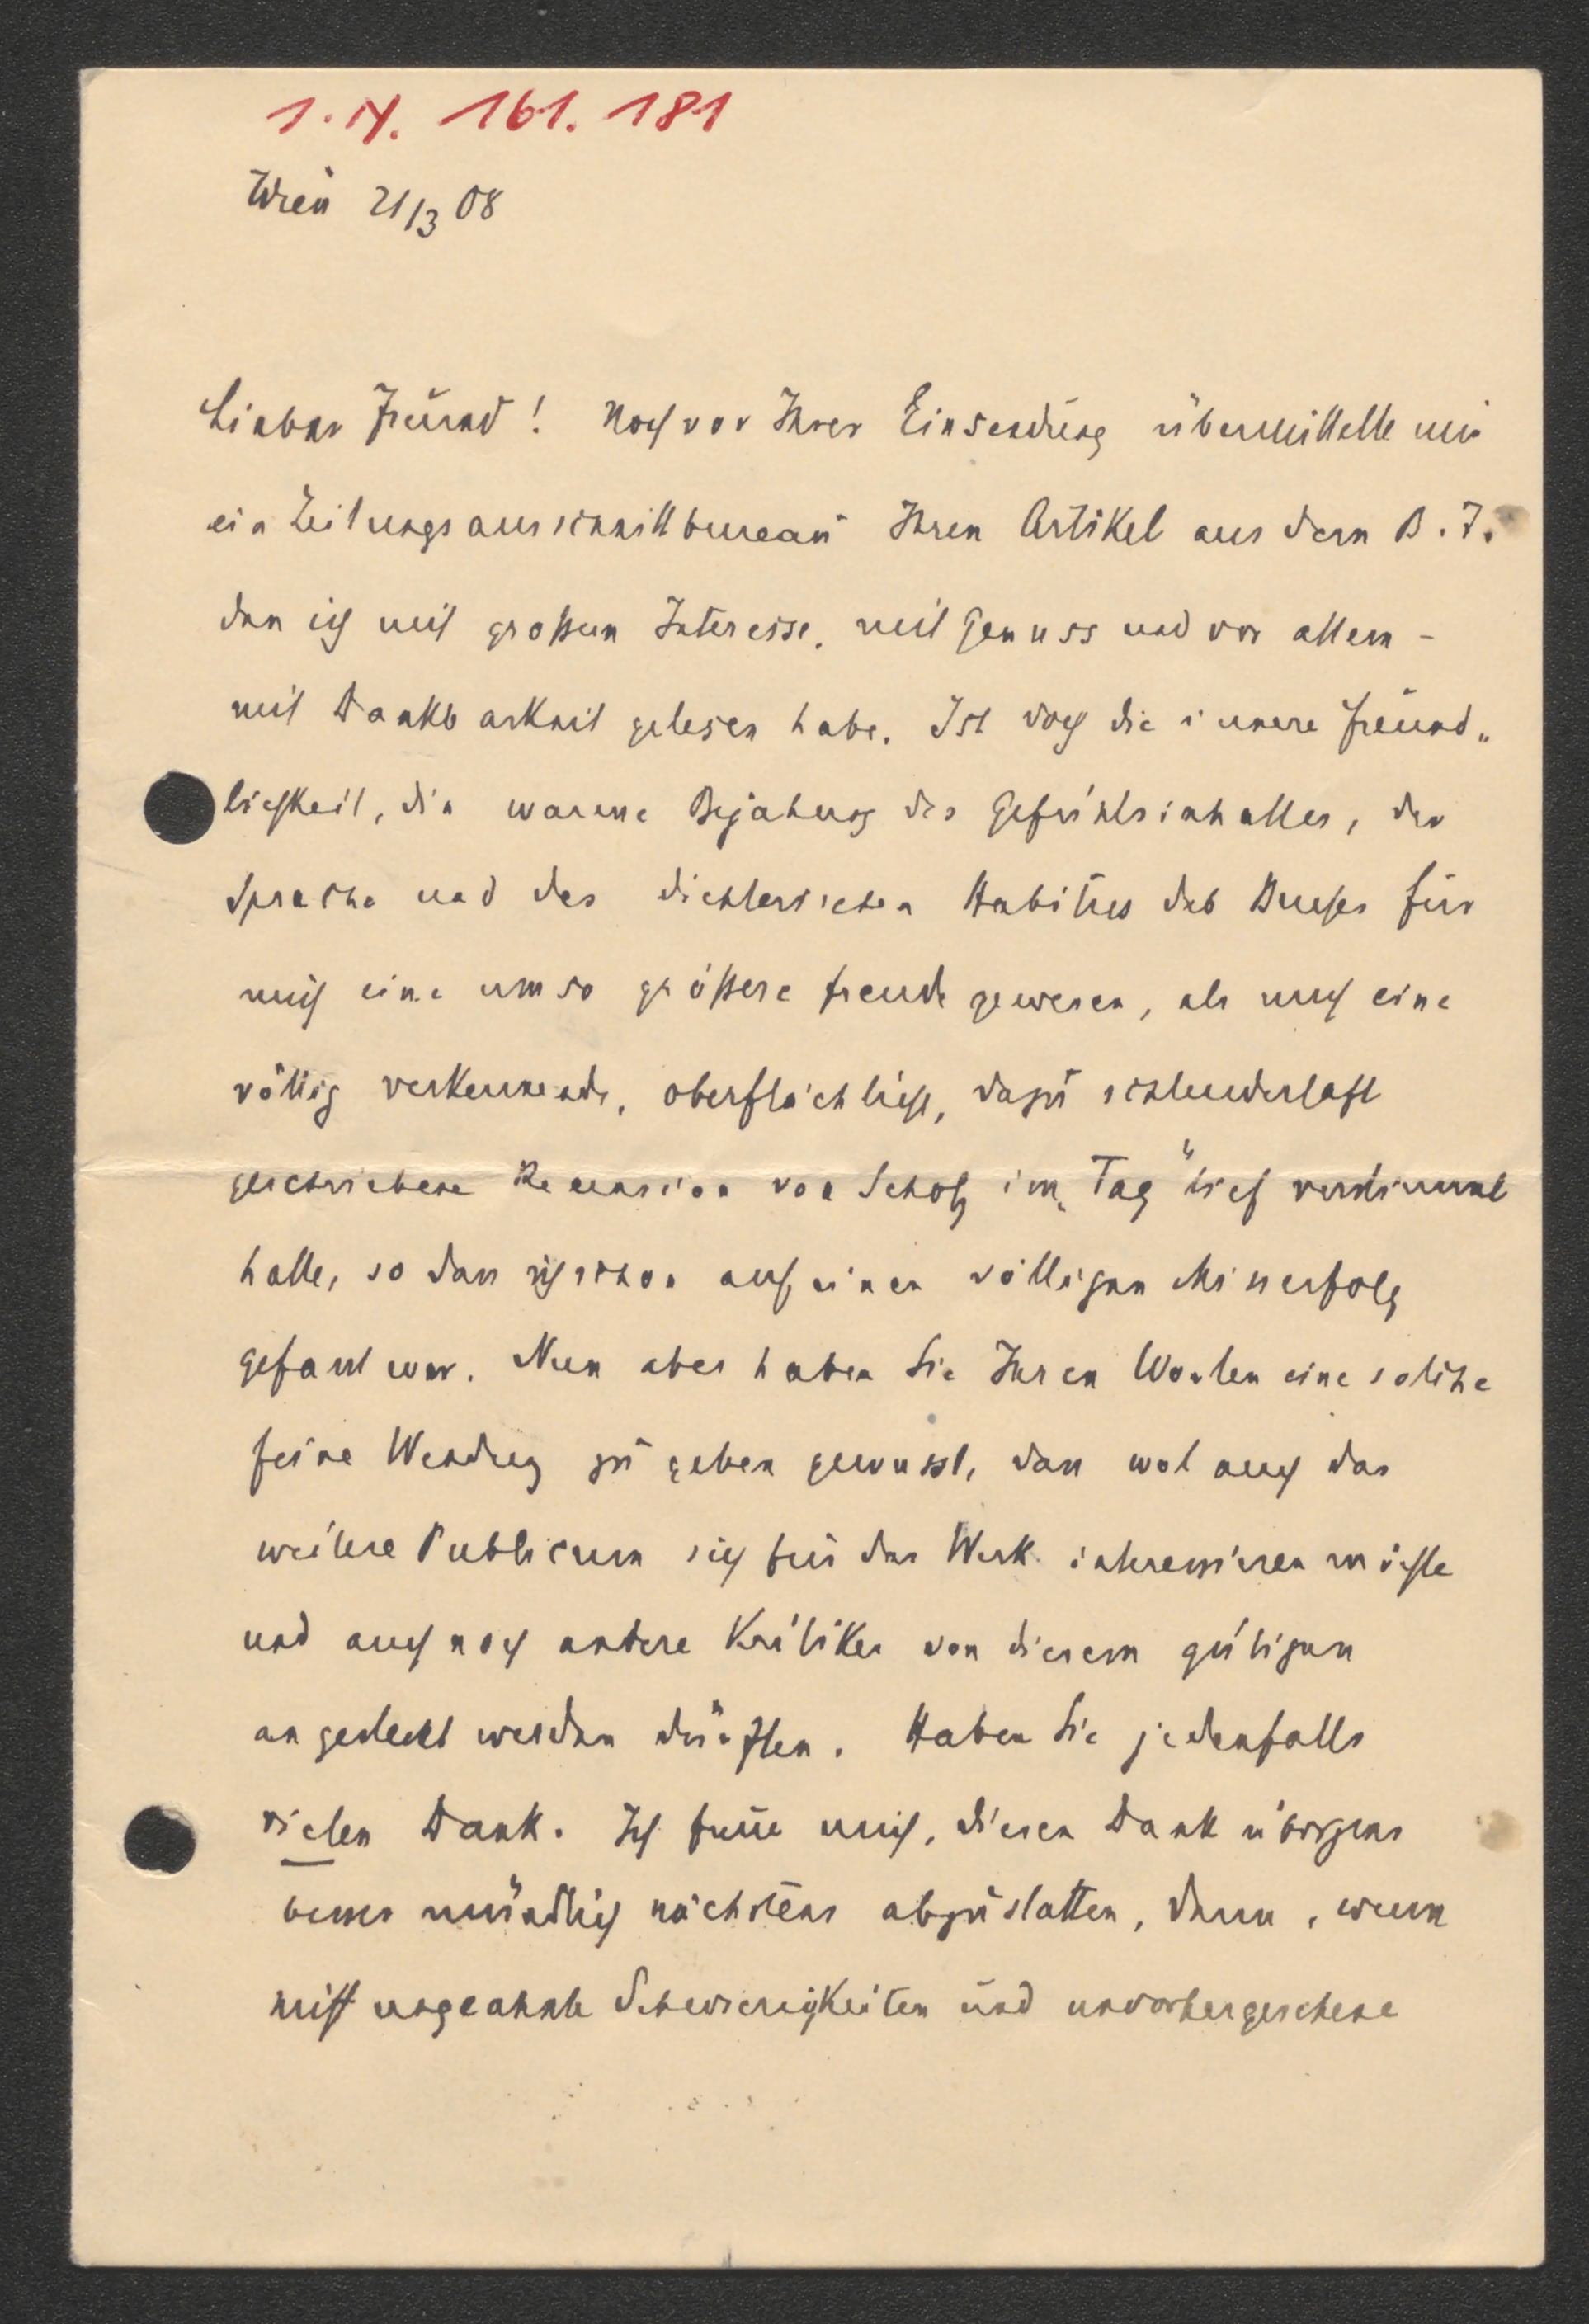 I. N. 161. 181
Wien 21/3 08
Lieber Freund! Noch vor Ihrer Einsendung übermittelte mir
ein Zeitungsausschnittbureau Ihren Artikel aus dem B. T.
den ich mit großem Interesse, mit Genuss und vor allem -
mit Dankbarkeit gelesen habe. Ist doch die innere Freund„
lichkeit, die warme Bejahung des Gefühlsinhaltes, der
Sprache und des dichterischen Habitus des Buches für
mich eine umso größere Freude gewesen, als mich eine
völlig verkennende, oberflächlich, dazu schleuderhaft
geschriebene Recension von Scholz im „Tag" tief verstimmt
hatte, so dass ich schon auf einen völligen Misserfolg
gefasst war. Nun aber haben Sie Ihren Worten eine solche
feine Wendung zu geben gewusst, dass wol auch das
weitere Publicum sich für das Werk interessiren möchte
und auch noch andere Kritiker von diesem gütigen
angesteckt werden dürften. Haben Sie jedenfalls
vielen Dank. Ich freue mich, diesen Dank übrigens
besser mündlich nächstens abzustatten, denn, wenn
nicht ungeahnte Schwierigkeiten und unvorhergesehene